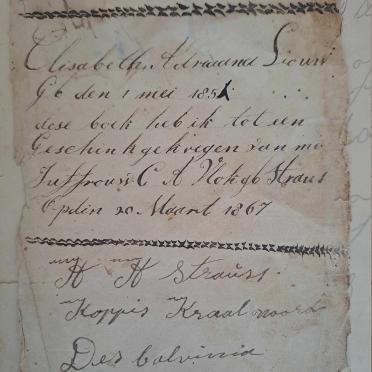 Elisabeth Adriaana Liouw
Gb den 1 mei 1851
dese boek heb ik tot een
Geschink gekregen van mi
Juffrouw C A gb Straus
Opdin 20 Maart 1867
A A Strauss
Koppis Kraal noord
Des Calvinia